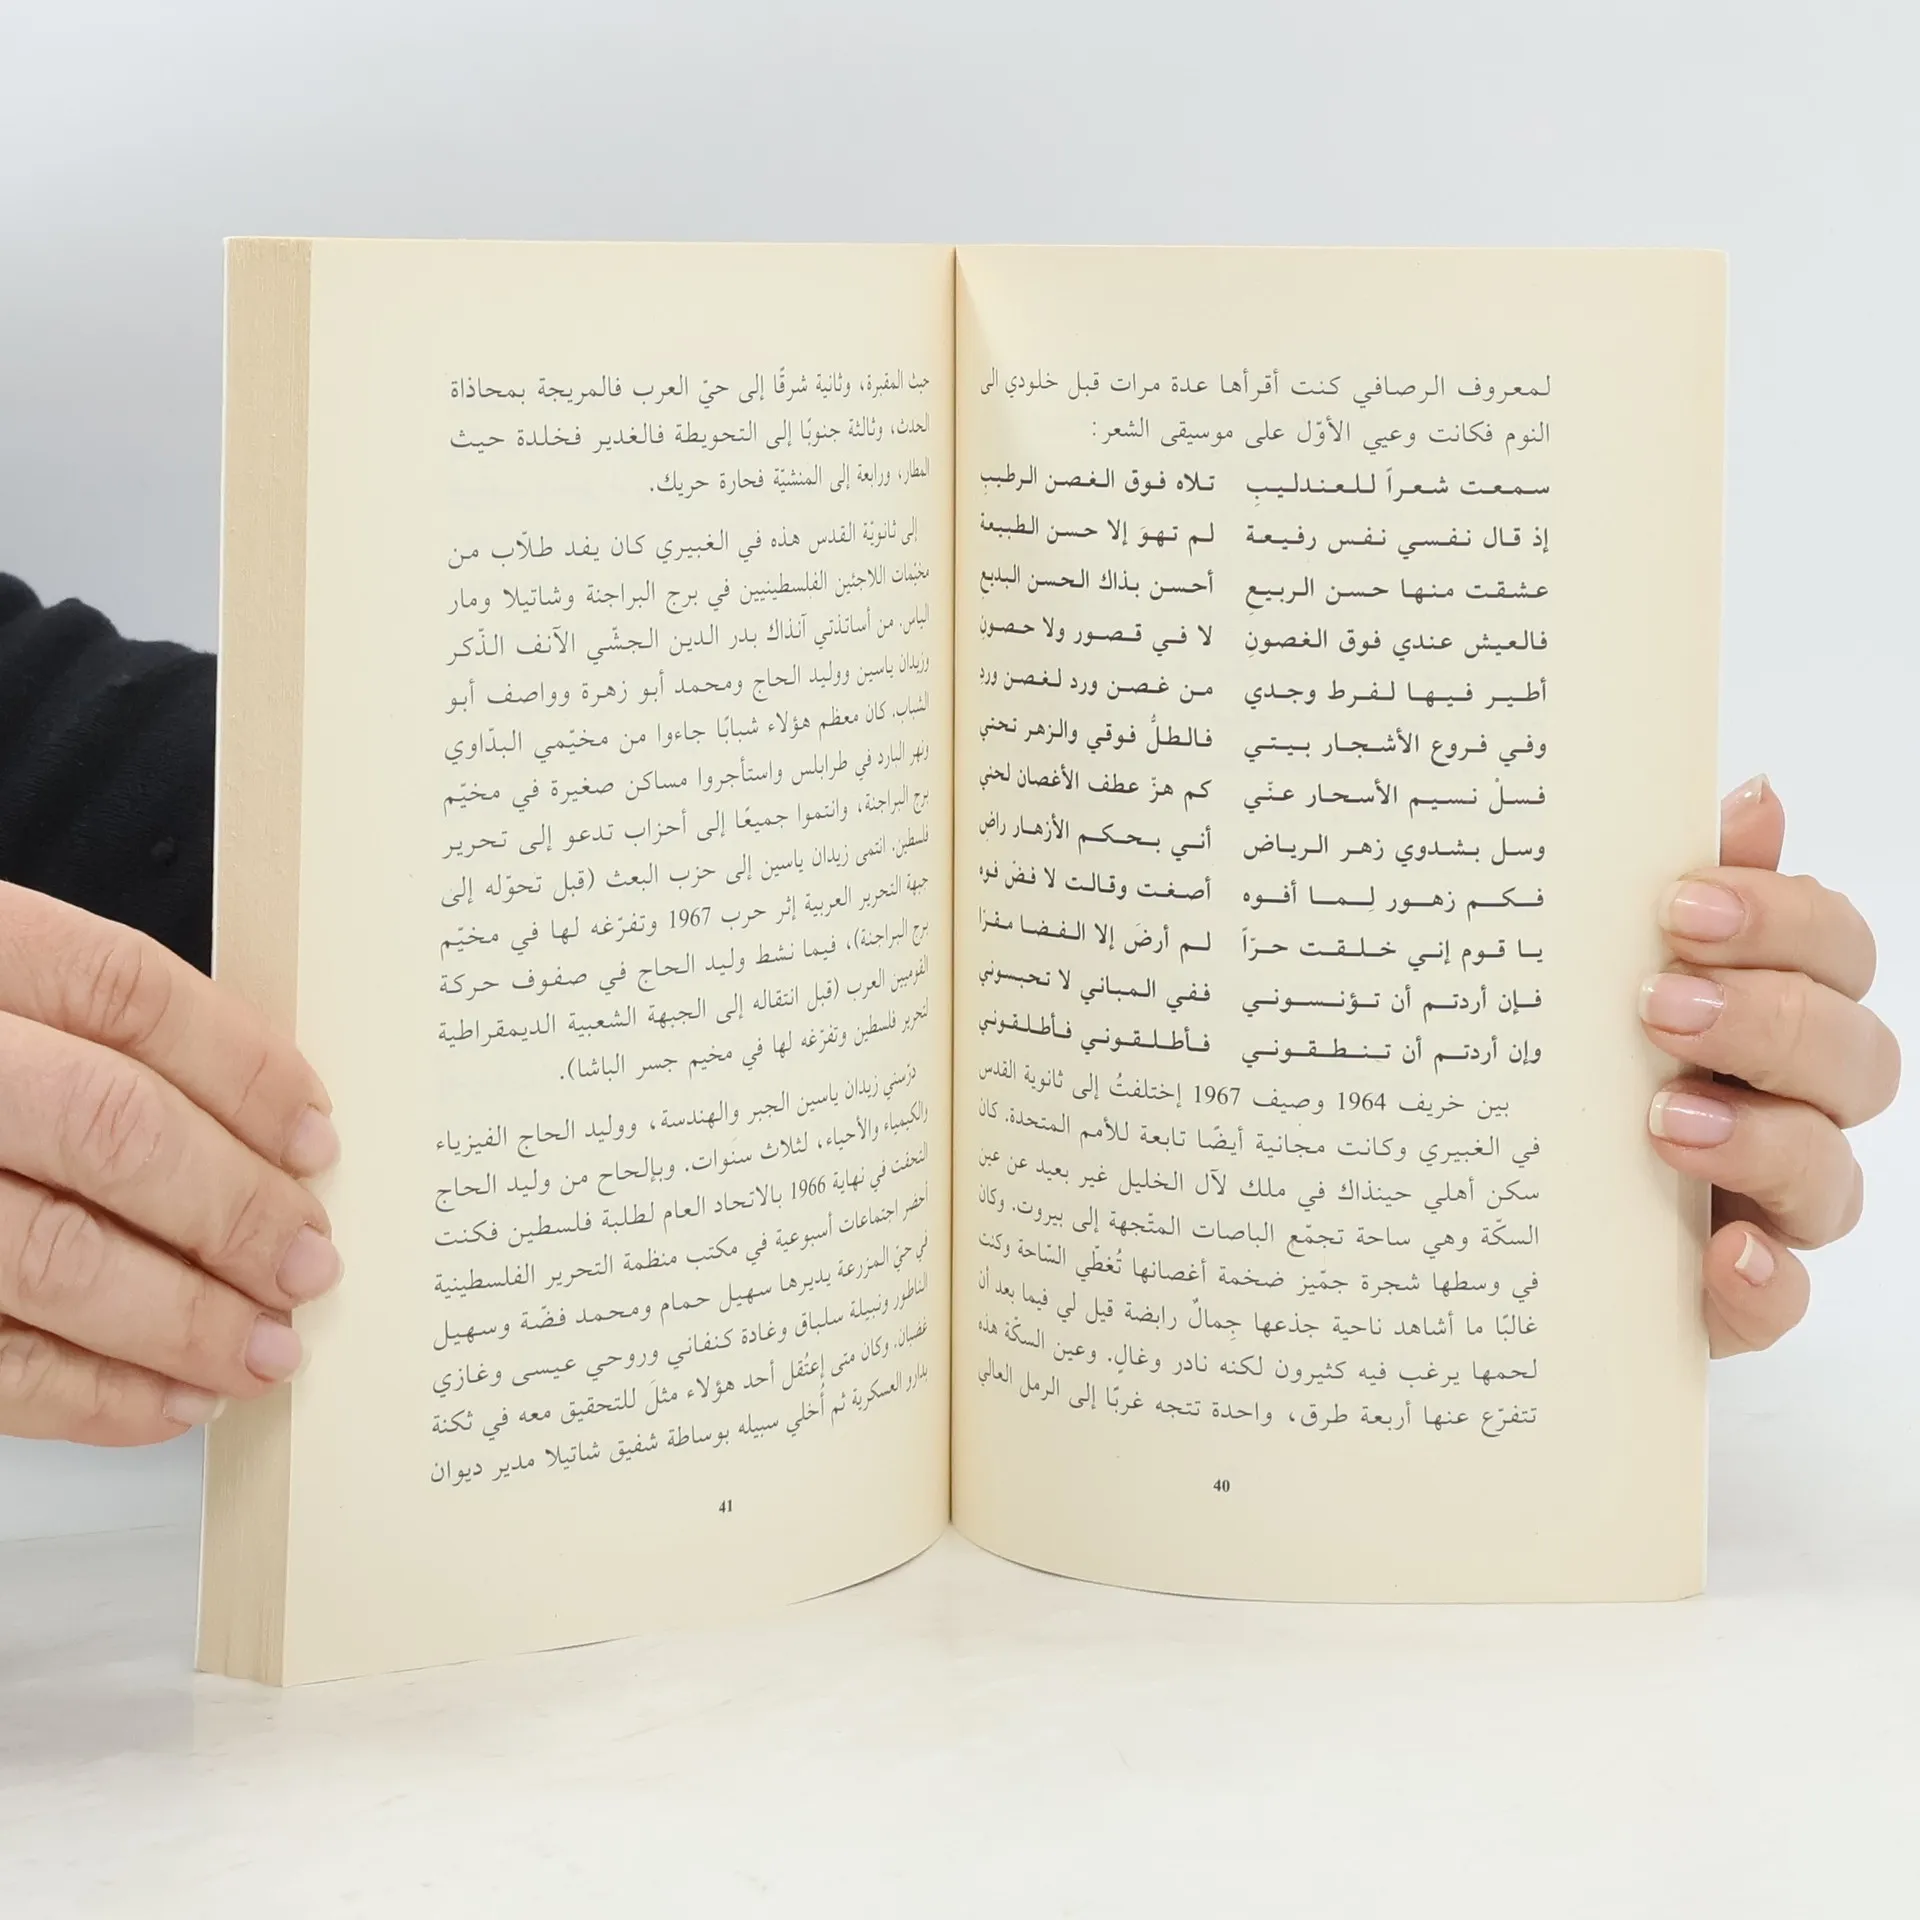 لمعروف الرصافي كنت أقرأها عدة مرات قبل خلودي الى
النوم فكانت وعيي الأوّل على موسيقى الشعر:
سمعت شعراً للعندليبِ تلاه فوق الغصن الرطيبِ
إذ قال نفسي نفس رفيعة لم تهوَ إلا حسن الطبيعة
عشقت منها حسن الربيعِ أحسن بذاك الحسن البديع
فالعيش عندي فوق الغصونِ لا في قصور ولا حصونِ
أطير فيها لفرط وجدي من غصن ورد لغصن ورد
وفي فروع الأشجار بيتي فالطلُّ فوقي والزهر تحتي
فسلْ نسيم الأسحار عنّي كم هزّ عطف الأغصان لحني
وسل بشدوي زهر الرياض أني بحكم الأزهار راضِ
فكم زهور لِما أفوه أصغت وقالت لا فضّ فوه
يا قوم إني خلقت حرّاً لم أرضَ إلا الفضا مقرّا
فإن أردتم أن تؤنسوني ففي المباني لا تحبسوني
وإن أردتم أن تنطقوني فأطلقوني فأطلقوني
بين خريف 1964 وصيف 1967 إختلفتُ إلى ثانوية القدس
في الغبيري وكانت مجانية أيضًا تابعة للأمم المتحدة. كان
سكن أهلي حينذاك في ملك لآل الخليل غير بعيد عن عين
السكّة وهي ساحة تجمّع الباصات المتّجهة إلى بيروت. وكان
في وسطها شجرة جمّيز ضخمة أغصانها تُغطّي السّاحة وكنت
غالبًا ما أشاهد ناحية جذعها جِمالٌ رابضة قيل لي فيما بعد أن
لحمها يرغب فيه كثيرون لكنه نادر وغالٍ. وعين السكّة هذه
تتفرّع عنها أربعة طرق، واحدة تتجه غربًا إلى الرمل العالي
40
حيث المقبرة، وثانية شرقًا إلى حيّ العرب فالمريجة بمحاذاة
الحدث، وثالثة جنوبًا إلى التحويطة فالغدير فخلدة حيث
المطار، ورابعة إلى المنشيّة فحارة حريك.
إلى ثانويّة القدس هذه في الغبيري كان يفد طلّاب من
مخيّمات اللاجئين الفلسطينيين في برج البراجنة وشاتيلا ومار
الياس. من أساتذتي آنذاك بدر الدين الجشّي الآنف الذّكر
وزيدان ياسين ووليد الحاج ومحمد أبو زهرة وواصف أبو
الشباب. كان معظم هؤلاء شبابًا جاءوا من مخيّمي البدّاوي
ونهر البارد في طرابلس واستأجروا مساكن صغيرة في مخيّم
برج البراجنة، وانتموا جميعًا إلى أحزاب تدعو إلى تحرير
فلسطين. انتمى زيدان ياسين إلى حزب البعث (قبل تحوّله إلى
جبهة التحرير العربية إثر حرب 1967 وتفرّغه لها في مخيّم
برج البراجنة)، فيما نشط وليد الحاج في صفوف حركة
القوميين العرب (قبل انتقاله إلى الجبهة الشعبية الديمقراطية
لتحرير فلسطين وتفرّغه لها في مخيم جسر الباشا).
درّسني زيدان ياسين الجبر والهندسة، ووليد الحاج الفيزياء
والكيمياء والأحياء، لثلاث سنَوات. وبإلحاح من وليد الحاج
التحقت في نهاية 1966 بالاتحاد العام لطلبة فلسطين فكنت
أحضر اجتماعات أسبوعية في مكتب منظمة التحرير الفلسطينية
في حيّ المزرعة يديرها سهيل حمام ومحمد فضّة وسهيل
الناطور ونبيلة سلباق وغادة كنفاني وروحي عيسى وغازي
غضبان. وكان متى إعتُقل أحد هؤلاء مثلَ للتحقيق معه في ثكنة
بدارو العسكرية ثم أُخلي سبيله بوساطة شفيق شاتيلا مدير ديوان
41